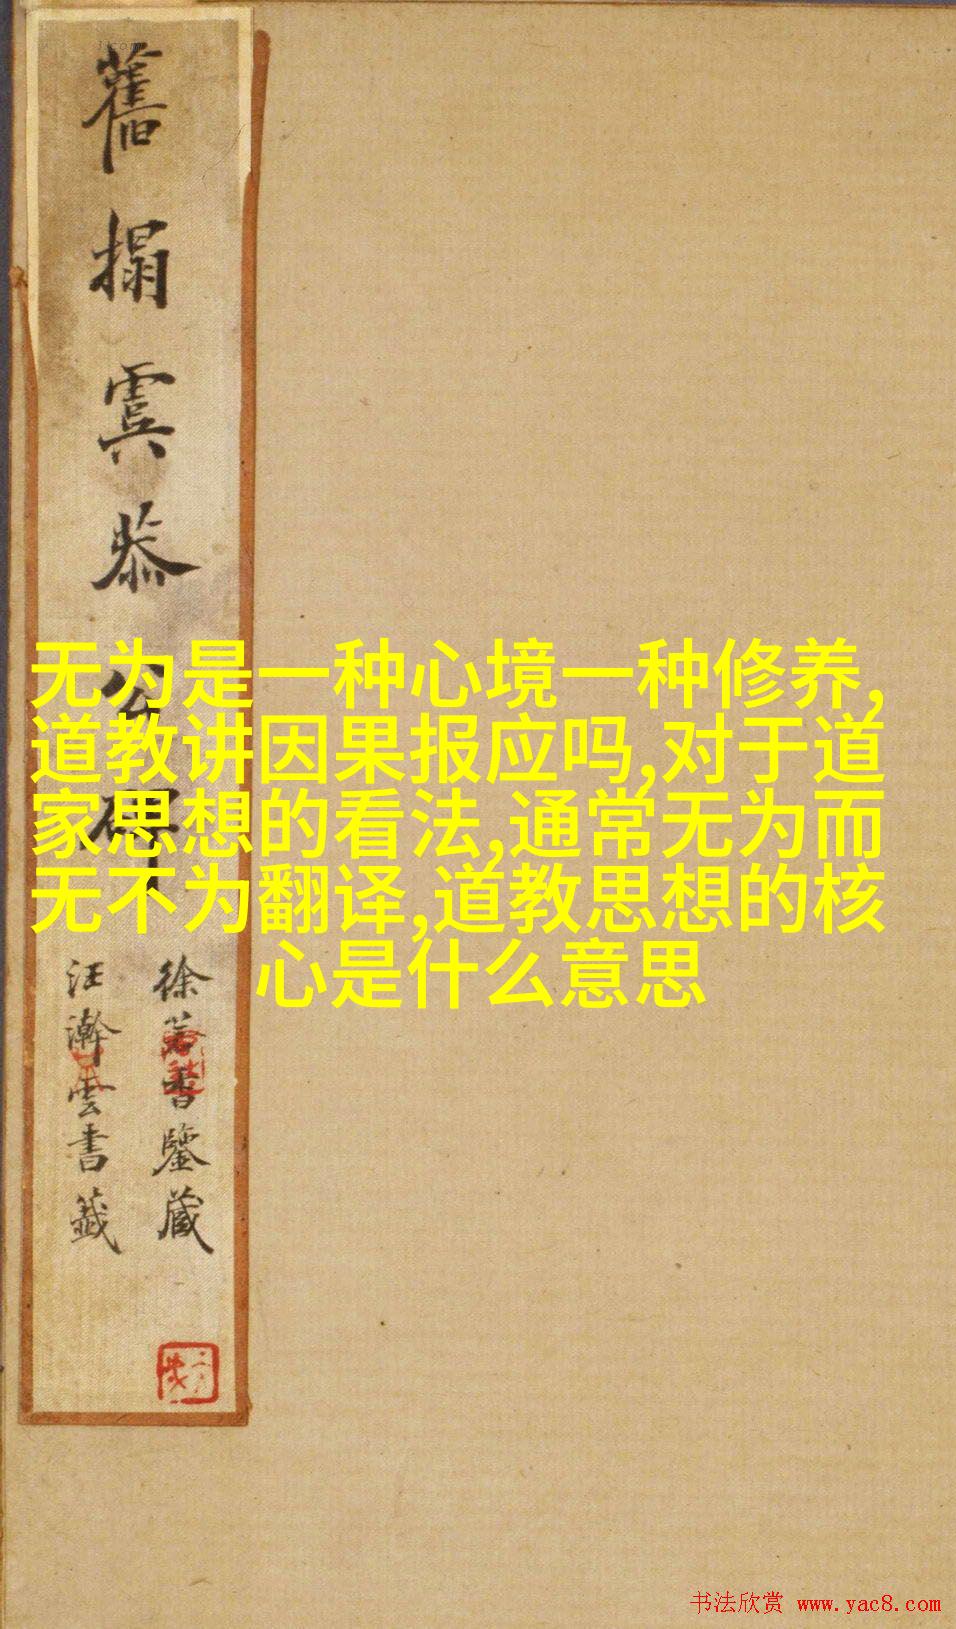 舊搨虞恭公碑
徐若書鑒藏
汪瀚雲書籤
无为是一种心境一种修养,
道教讲因果报应吗,对于道
家思想的看法,通常无为而
无不为翻译,道教思想的核
心是什么意思
书法欣赏 www.yac8.com